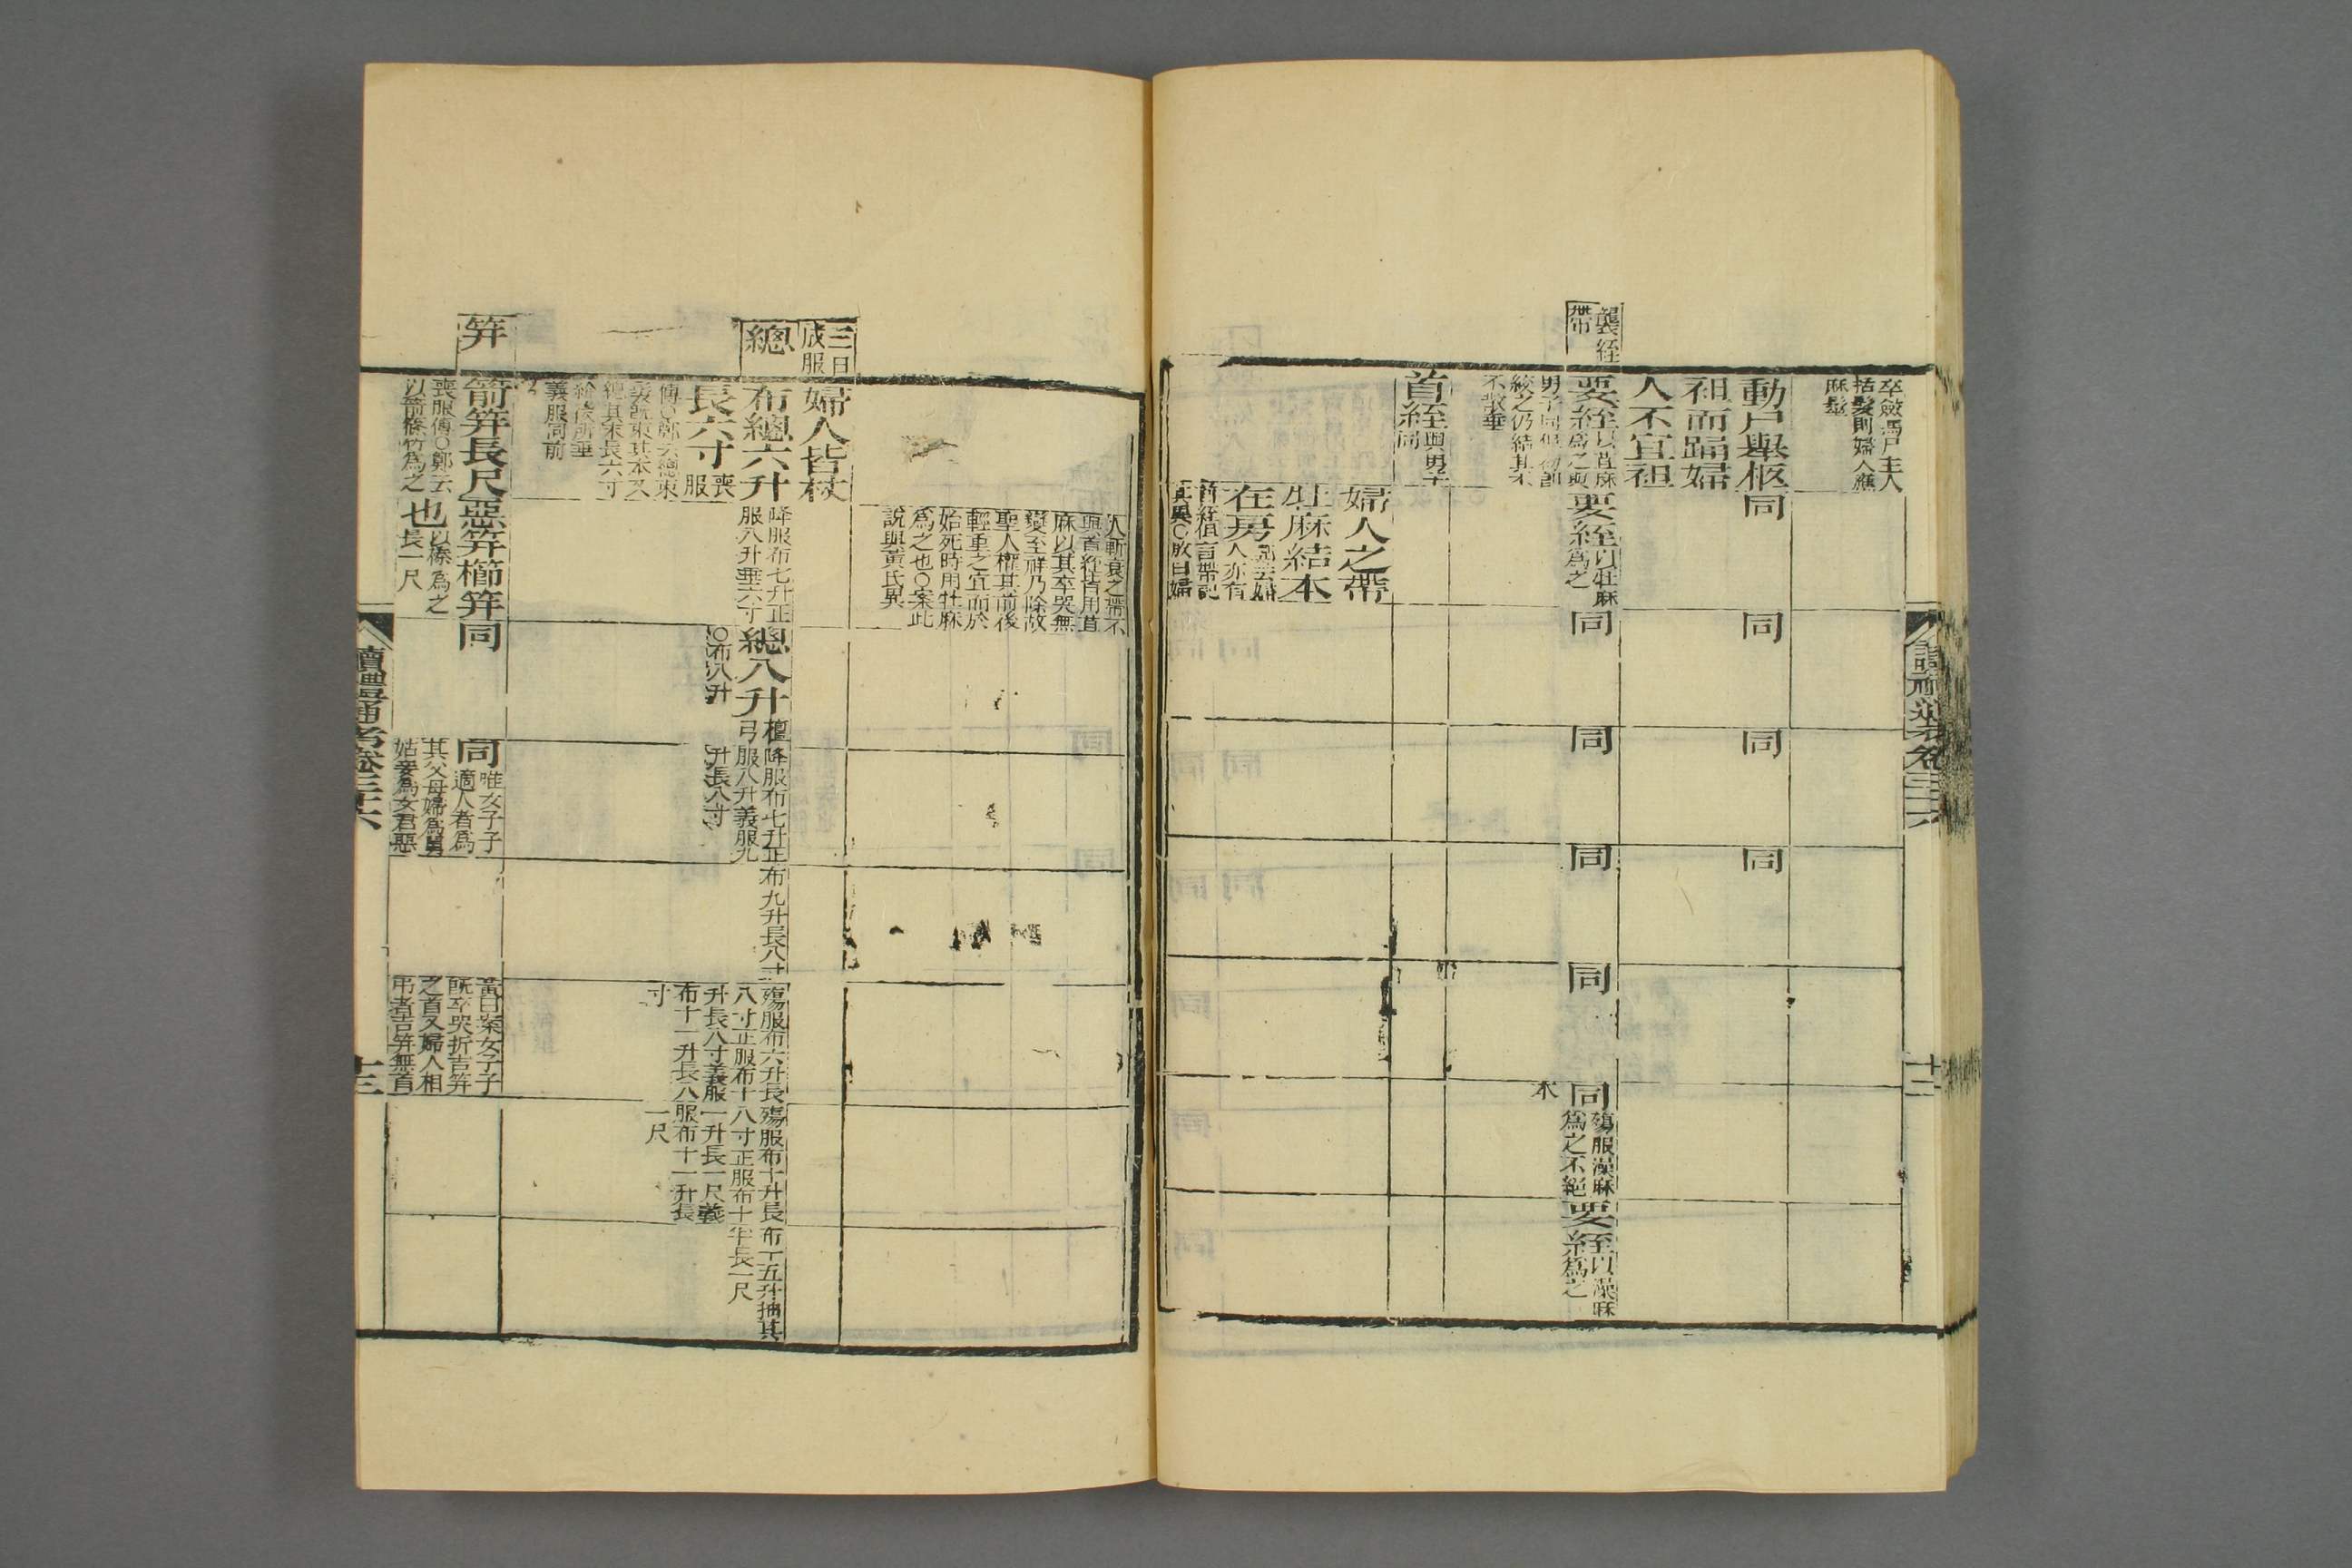 卒斂馮尸主人
括髮則婦人應
麻髽
動尸舉柩
袒而踊婦
人不宜袒
同
同
同
同
襲絰
帶
要絰以苴麻
為之與
男子同
絞之仍結其本
不散垂
要絰以牡麻
為之
同
同
同
同
同殤服澡麻
為之不絕
本
要絰以澡麻
為之
首絰與男子
同
婦人之帶
牡麻結本
在房
人亦有
首絰但言帶記
其異○敖曰婦
讀禮通考卷三十六
十二
人斬衰之帶不
與首絰皆用苴
麻以其卒哭無
變至祥乃除故
聖人權其前後
輕重之宜而於
始死時用牡麻
為之也○案此
說與黃氏異
三日
成服
婦人皆杖
總
布總六升
長六寸喪
服
傳○鄭云總束
髮既束其本又
總其末長六寸
義服同前
降服布七升正
服八升垂六寸
總八升檀
弓
○布八升
降服布七升正
服八升義服九
升長八寸
布九升長八寸
殤服布六升長
八寸正服布十
升長八寸義服
布十一升長八
寸
殤服布十升長
八寸正服布十
一升長一尺義
服布十一升長
一尺
布十五升抽其
半長一尺
笄
箭笄長尺
喪服傳○鄭云
以箭篠竹為之
惡笄櫛笄
也以榛為之
長一尺
同
同唯女子子
適人者為
其父母婦為舅
姑妾為女君惡
黃曰案女子子
既卒哭折吉笄
之首又婦人相
弔者吉笄無首
讀禮通考卷三十六
十三